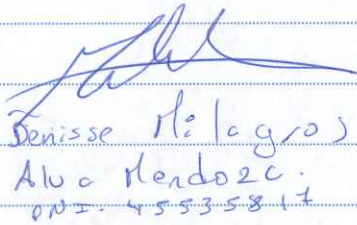 Denisse Milagros
Alva Mendoza.
DNI. 45535817